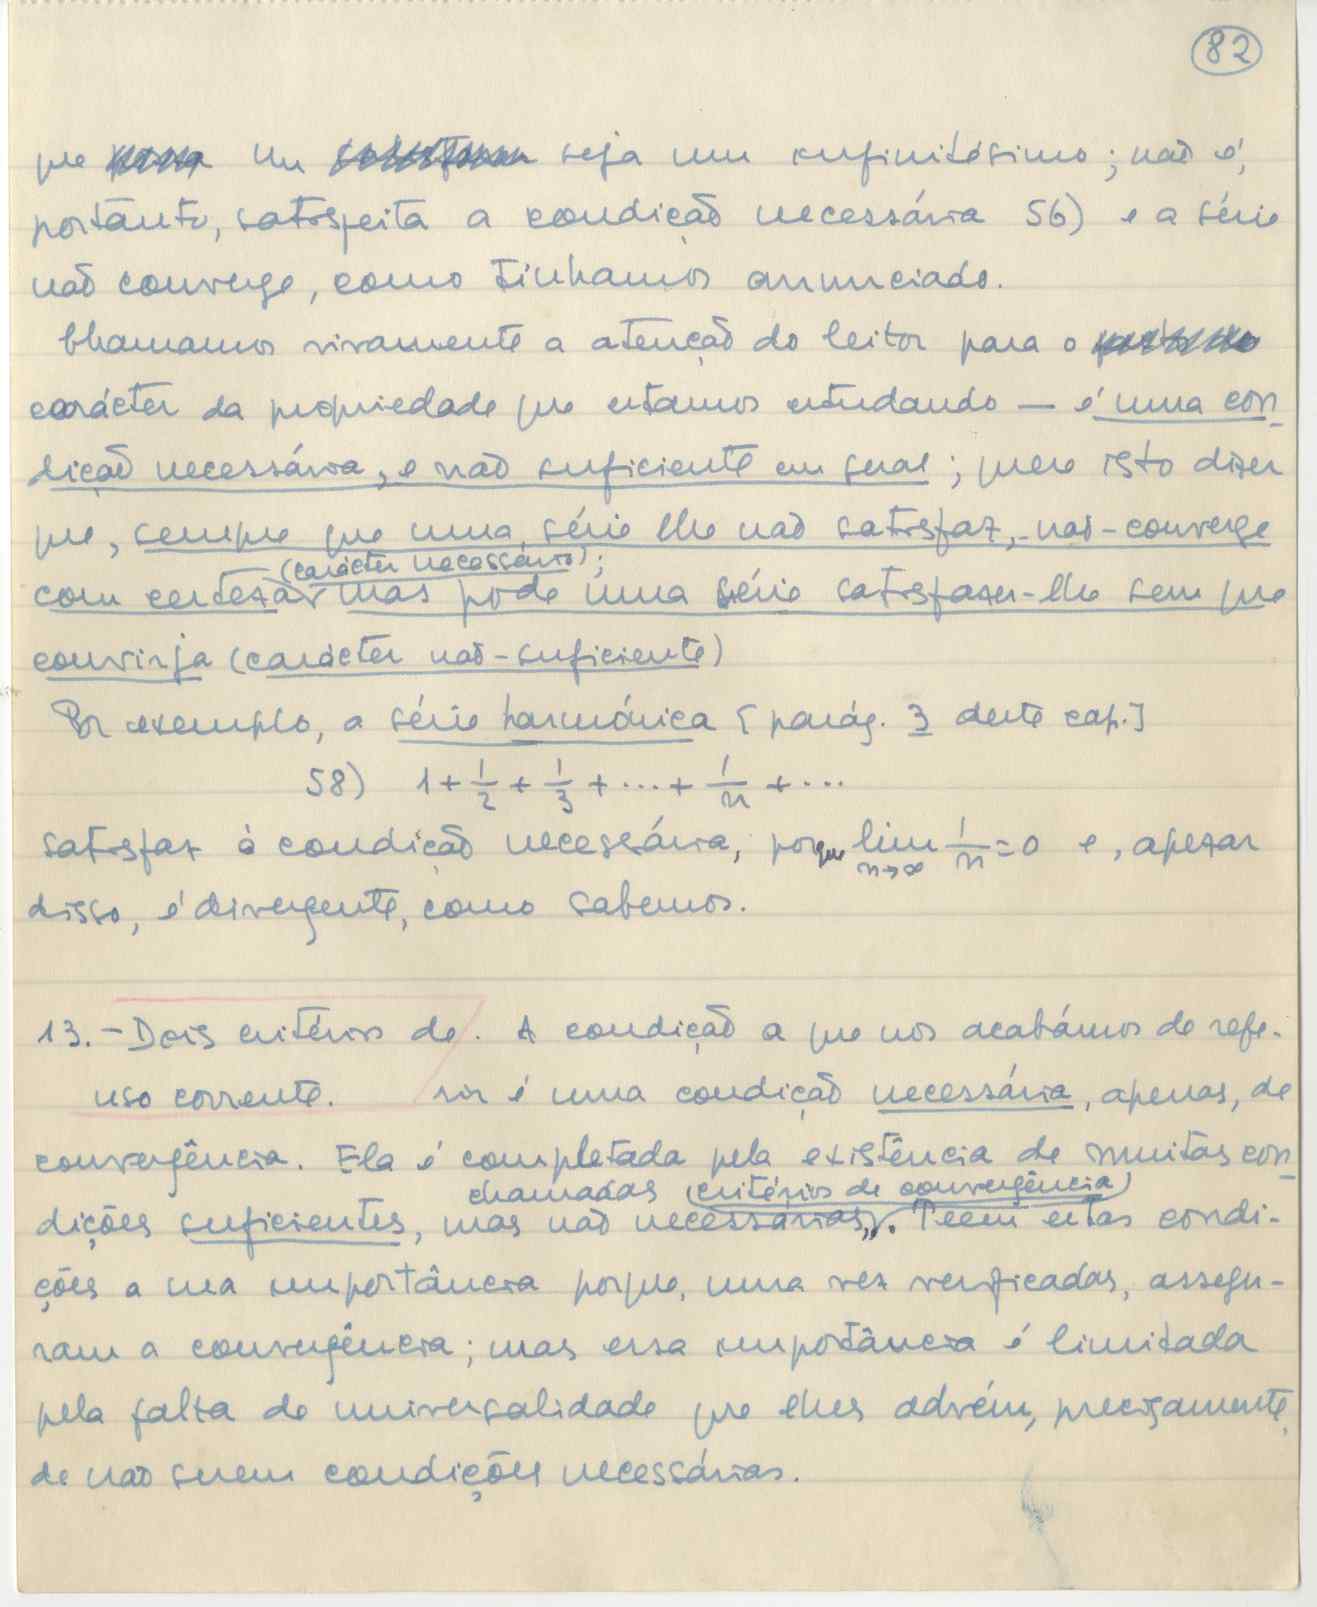 82
que un seja um infinitésimo; não é,
portanto, satisfeita a condição necessária 56) e a série
não converge, como tínhamos anunciado.
Chamamos vivamente a atenção do leitor para o
carácter da propriedade que estamos estudando — é uma con-
dição necessária, e não suficiente em geral; quere isto dizer
que, sempre que uma série lhe não satisfaz, não-converge
(carácter necessário);
com certeza mas pode uma série satisfazer-lhe sem que
convirja (carácter não-suficiente)
Por exemplo, a série harmónica [parág. 3 deste cap.]
58) 1 + 1/2 + 1/3 + ... + 1/n + ...
satisfaz à condição necessária, porque lim n→∞ 1/n = 0 e, apezar
disso, é divergente, como sabemos.
13. - Dois critérios de . A condição a que nos acabámos de refe-
uso corrente. rir é uma condição necessária, apenas, de
convergência. Ela é completada pela existência de muitas con-
chamadas (critérios de convergência)
dições suficientes, mas não necessárias,. Teem estas condi-
ções a sua importância porque, uma vez verificadas, assegu-
ram a convergência; mas essa importância é limitada
pela falta de universalidade que lhes advém, precisamente,
de não serem condições necessárias.